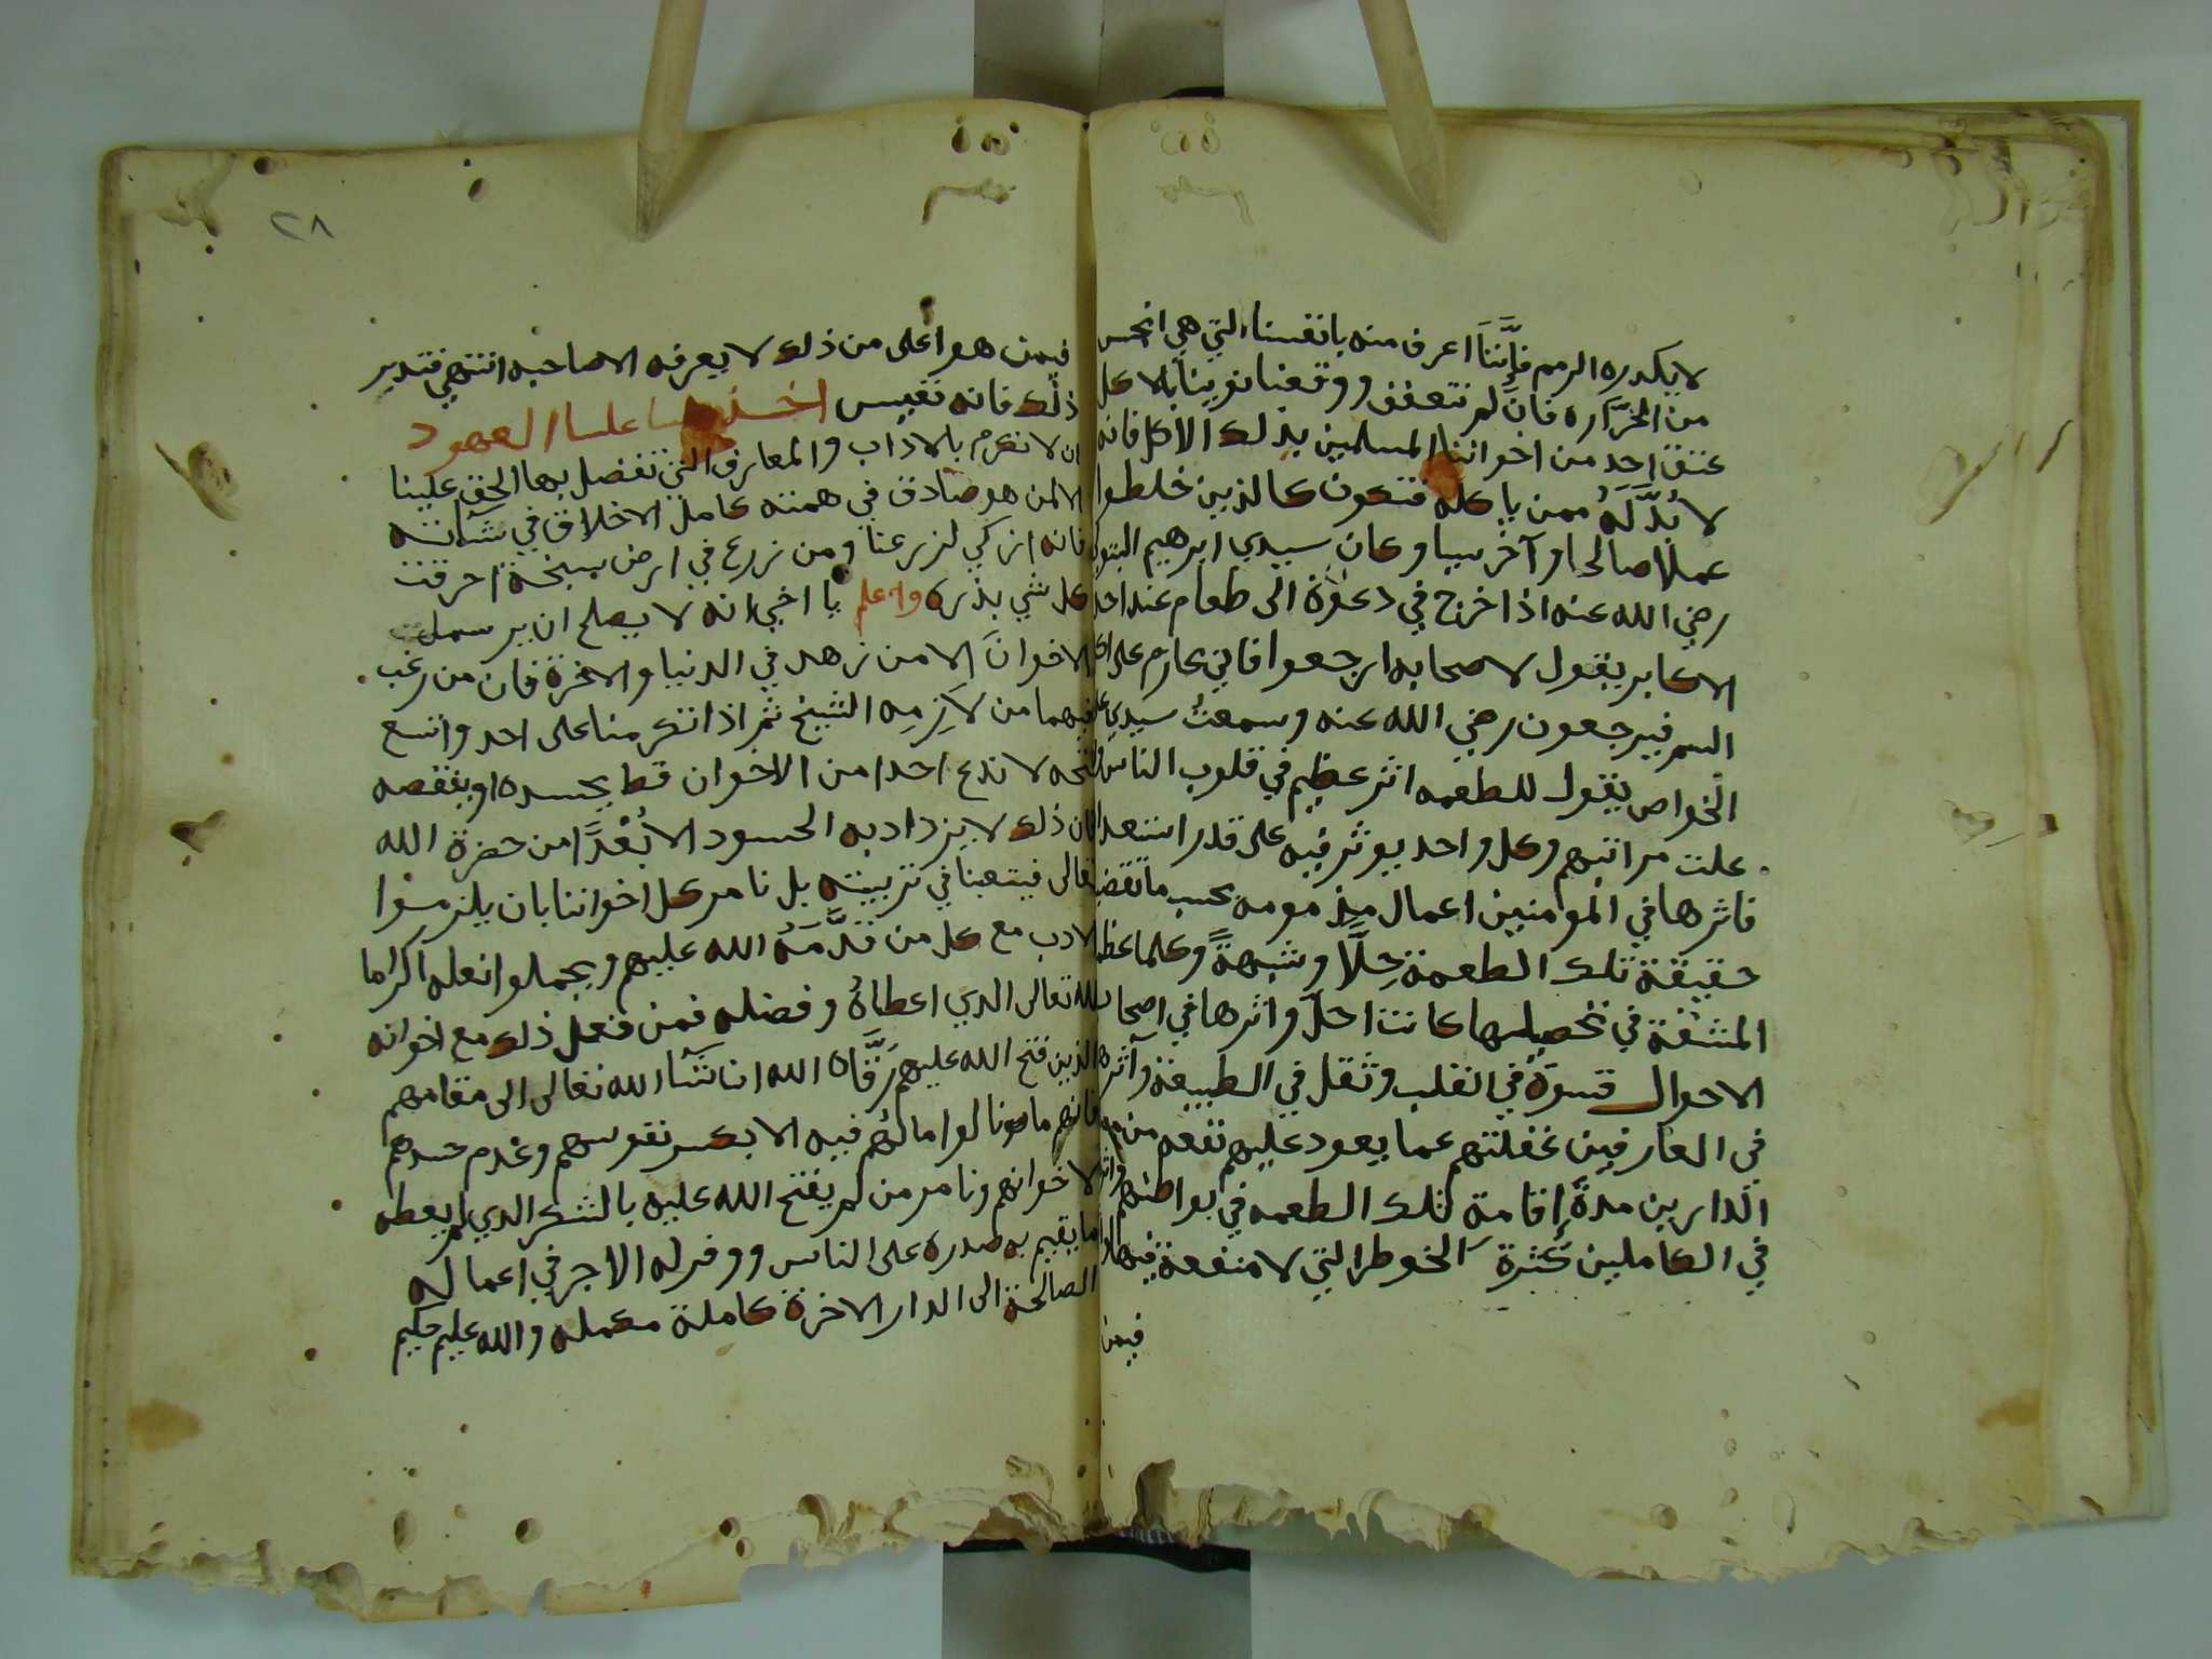 لا يكدره الرمم فإننا اعرف منه بانفسنا التي هي انحس
من الخراره فان لم نتعفف ووقعنا نوينا بالاكل
عتق احد من اخواننا المسلمين بذلك الاكل فانه
لا بد له ممن ياكله فتكون كالذين خلطوا
عملا صالحا وآخر سيا وكان سيدي ابرهيم المتبولي
رضي الله عنه اذا خرج في دعوة الى طعام عند احد
الاكابر يقول لاصحابه ارجعوا فاني عازم على اكل
السم فيرجعون رضي الله عنه وسمعت سيدي علي
الخواص يقول للطعمه اثر عظيم في قلوب الناس ولو
علت مراتبهم وكل واحد يوثر فيه على قدر استعداده
فاثرها في المومنين اعمال مذمومه بحسب ما تقتضيه
حقيقة تلك الطعمة حلا وشبهة وكلما عظم
المشقة في تحصيلها كانت احل واثرها في اصحاب
الاحوال قسوة في القلب وثقل في الطبيعة وآثرها
في العارفين غفلتهم عما يعود عليهم نفعه من
الدارين مدة اقامة تلك الطعمه في بواطنهم واثرها
في الكاملين كثرة الخوطر التي لا منفعة فيها
فيمن
٢٨
فيمن هو اعلى من ذلك لا يعرفه الا صاحبه انتهى فتدبر
ذلك فانه نفيس اخذ علينا العهود
ان لا نكرم بالاداب والمعارف التي تفضل بها الحق علينا
الا لمن هو صادق في همته كامل الاخلاق في شانه
فانه ازكي لزرعنا ومن زرع في ارض سبخة احرقت
كل شي بذره واعلم يا اخي انه لا يصلح ان يرسملت
الاخوان الا من زهد في الدنيا والاخرة فان من رغب
فيهما من لازمه الشيخ ثم اذا تكرمنا على احد واتسع
فتحه لا ندع احدا من الاخوان قط يحسده او ينقصه
فان ذلك لا يزداد به الحسود الا بعدا من حضرة الله
تعالى فيتعبنا في تربيته بل نامر كل اخواننا بان يلزموا
الادب مع كل من قدمه الله عليهم ويجملوا نعله اكراما
لله تعالى الدي اعطاه وفضله فمن فعل ذلك مع اخوانه
الذين فتح الله عليهم رقاه الله ان شآ الله تعالى الى مقامهم
فانهم ما نالوا ما لهم فيه الا بكسر نفوسهم وعدم حسدهم
لاخوانهم ونامر من لم يفتح الله عليه بالشكر الدي لم يعطه
ما يقيم به صدره على الناس ووفر له الاجر في اعماله
الصالحة الى الدار الاخرة كاملة مكمله والله عليم حكيم